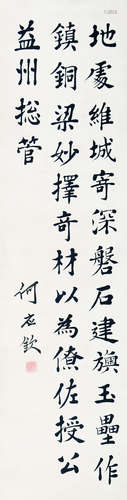 地處維城寄深磐石建旟玉壘作
鎮銅梁妙擇奇材以為僚佐授公
益州総管
何应欽